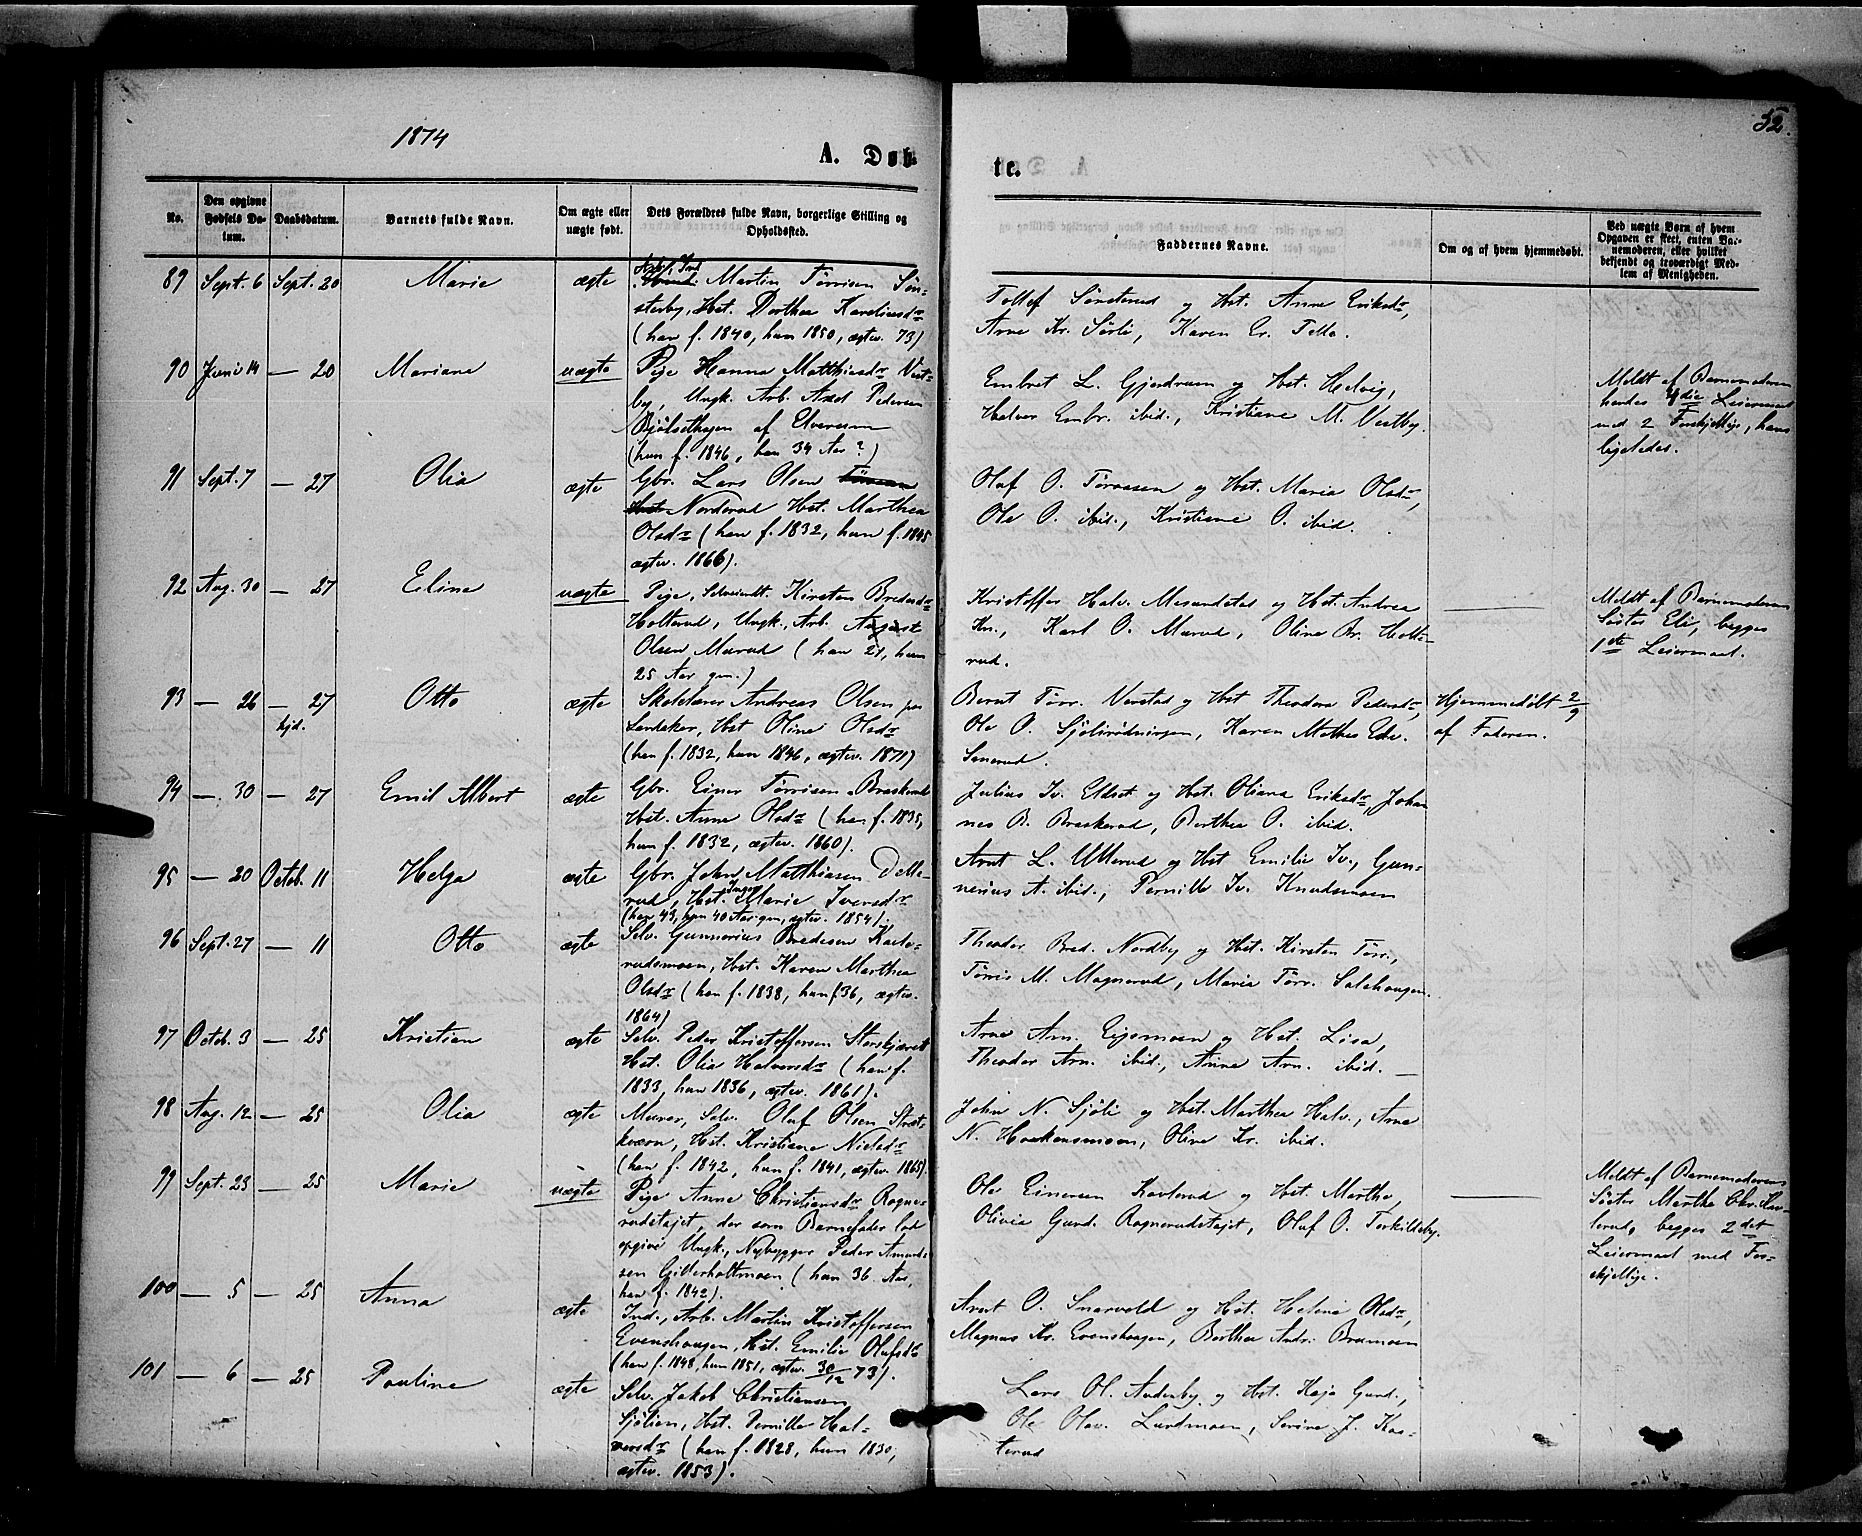 1874
52.
A. Døb
te.
No.
Den opgivne Fødsels Da-
tum.
Daabsdatum.
Barnets fulde Navn.
Om ægte eller
uægte født.
Dets Forældres fulde Navn, borgerlige Stilling og
Opholdssted.
Faddernes Navne.
Om og af hvem hjemmedøbt.
Ved uægte Børn af hvem
Opgaven er skeet, enten Bar-
nemoderen, eller hvilket
bekjendt og troværdigt Med-
lem af Menigheden.
89 Sept. 6 Sept. 20 Marie ægte
Martin Tørrisen Søn-
sterby, Hst. Dorthea Kareliusdr
(han f. 1840, hun 1850, ægtev. 73)
Tollef Sønsterud og Hst. Anne Eriksdr,
Arne Kr. Sørli, Karen Er. Tello.
90 Juni 14 — 20 Mariane uægte
Pige Hanna Matthiasdr Vest-
by, Ungk. Arb. Axel Pedersen
af Elverum
(hun f. 1846, han 34 Aar?)
Embret L. Gjerdrum og Hst. Helvig,
Halvor Embr. ibid., Kristiane M. Vestby.
Meldt af Barnemoderen
hendes 4die Leiermaal
med 2 Forskjellige, hans
ligeledes.
91 Sept. 7 — 27 Olia ægte
Gbr. Lars Olsen
Norderud Hst. Marthea
Olsdr (han f. 1832, hun f. 1845
ægtev. 1866).
Oluf O. Tøraasen og Hst. Maria Olsdr,
Ole O. ibid., Kristiane O. ibid.
92 Aug. 30 — 27 Eline uægte
Pige, Kirsten Bredesdr
Holterud, Ungk., Arb. August
Olsen Murud (han 21, hun
25 Aar gm.)
Kristoffer Halv. og Hst. Andrea
Kr., Karl O. Murud, Oline Br. Holte-
rud.
Meldt af Barnemoderens
Søster Eli, begges
1ste Leiermaal.
93 — 26 — 27 Otto ægte
hjd.
Skolelærer Andreas Olsen paa
Hst Oline Olsdr
(han f. 1832, hun 1846, ægtev. 1871)
Bernt Tørr. og Hst Theodora Pedersdr,
Ole O. Karen Mathea
Hjemmedøbt 2/9
af Faderen.
94 — 30 — 27 Emil Albert ægte
Gbr. Einer Tørrisen Braskerud
Hst. Anne Olsdr (han f. 1835,
hun f. 1832, ægtev. 1860).
Julius Iv. Eldset og Hst. Oliana Eriksdr, Johan
nes B. Braskerud, Berthea O. ibid.
95 — 20 Octob. 11 Helga ægte
Gbr. John Matthiasen
rud, Hst. Inger Marie Iversdr
(han 43, hun 40 Aar gm, ægtev. 1854).
Arnt L. Ulterud og Hst Emilie Iv., Gun-
nerius A. ibid., Pernille Iv. Knudsmoen
96 Sept. 27 — 11 Otto ægte
Selv. Gunnerius Bredesen Karle-
rudsmoen, Hst. Karen Marthea
Olsdr (han f. 1838, hun f. 36, ægtev.
1864)
Theodor Bred. Nordby og Hst. Kirsten Tørr.,
Tørris M. Magnerud, Maria Tørr. Salshaugen.
97 Octob. 3 — 25 Kristian ægte
Selv. Peder Kristoffersen Storskjæret
Hst. Olia Halvorsdr (han f.
1833, hun 1836, ægtev. 1861).
Arne Arn. og Hst. Lisa,
Theodor Arn. ibid., Anne Arn. ibid. —
98 Aug. 12 — 25 Olia ægte
Murer, Selv. Oluf Olsen Stræt-
kværn, Hst. Kristiane Nielsdr
(han f. 1842, hun f. 1841, ægtev. 1865).
John N. Sjøli og Hst. Marthea Halv., Arne
N. Haakonsmoen, Oline Kr. ibid.
99 Sept. 23 — 25 Marie uægte
Pige Anne Christiansdr Ragne-
rudstajet, der som Barnefader lod
opgive Ungk., Nybygger Peder Amund-
sen Gilderholtmoen (han 36 Aar,
hun f. 1842).
Ole Einersen Karlerud og Hst. Marthe,
Olivia Gund. Ragnerudstajet, Oluf O. Torkildsby.
Meldt af Barnemoderens
Søster Marthe Chr. Kar-
lerud, begges 2det
Leiermaal med For-
skjellige.
100 — 5 — 25 Anna ægte
Ind., Arb. Martin Kristoffersen
Evenshaugen, Hst. Emilie Olufsdr
(han f. 1848, hun 1851, ægtev. 30/12 73).
Arnt O. Snarvold og Hst. Helene Olsdr,
Magnus Kr. Evenshaugen, Berthea Andr. Bramoen
101 — 6 — 25 Pauline ægte
Selv. Jakob Christiansen
Sjølien, Hst. Pernille Hal-
vorsdr (han f. 1828, hun 1830,
ægtev. 1853).
Lars Ol. Anderby og Hst. Kaja Gund.,
Ole Olav. Lundmoen, Serine J. Kas-
terud